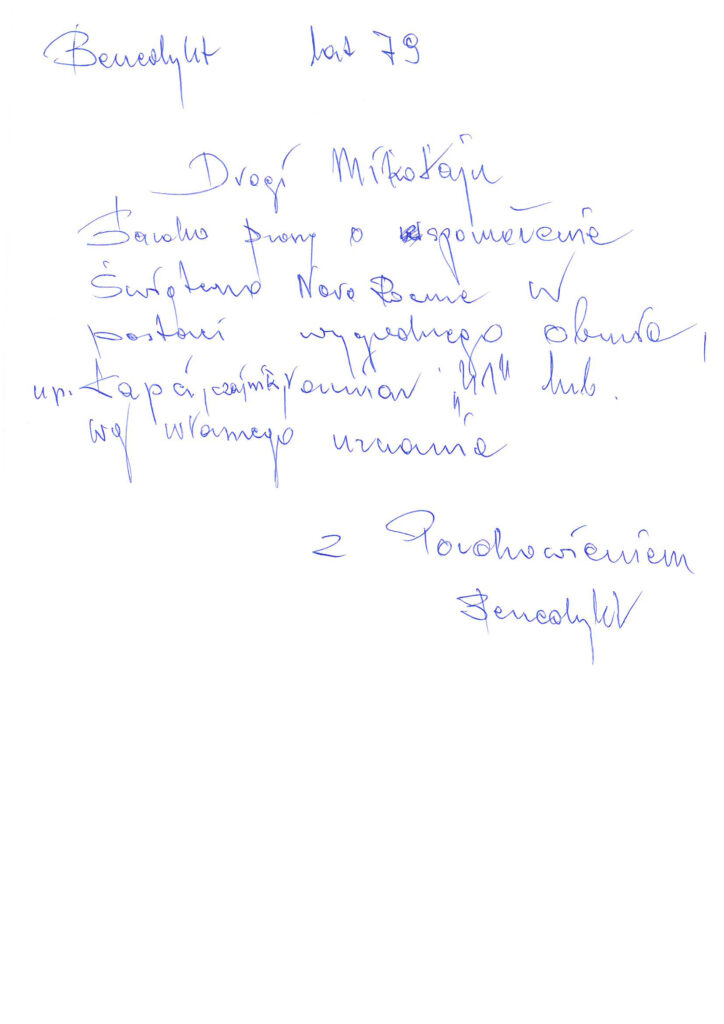 Benedykt lat 79
Drogi Mikołaju
Bardzo proszę o wspomożenie
Świąteczno Noworoczne w
postaci wygodnego obuwia,
np. Łapci, czajnik, rozmiar „41" lub.
wg własnego uznania
z Pozdrowieniem
Benedykt